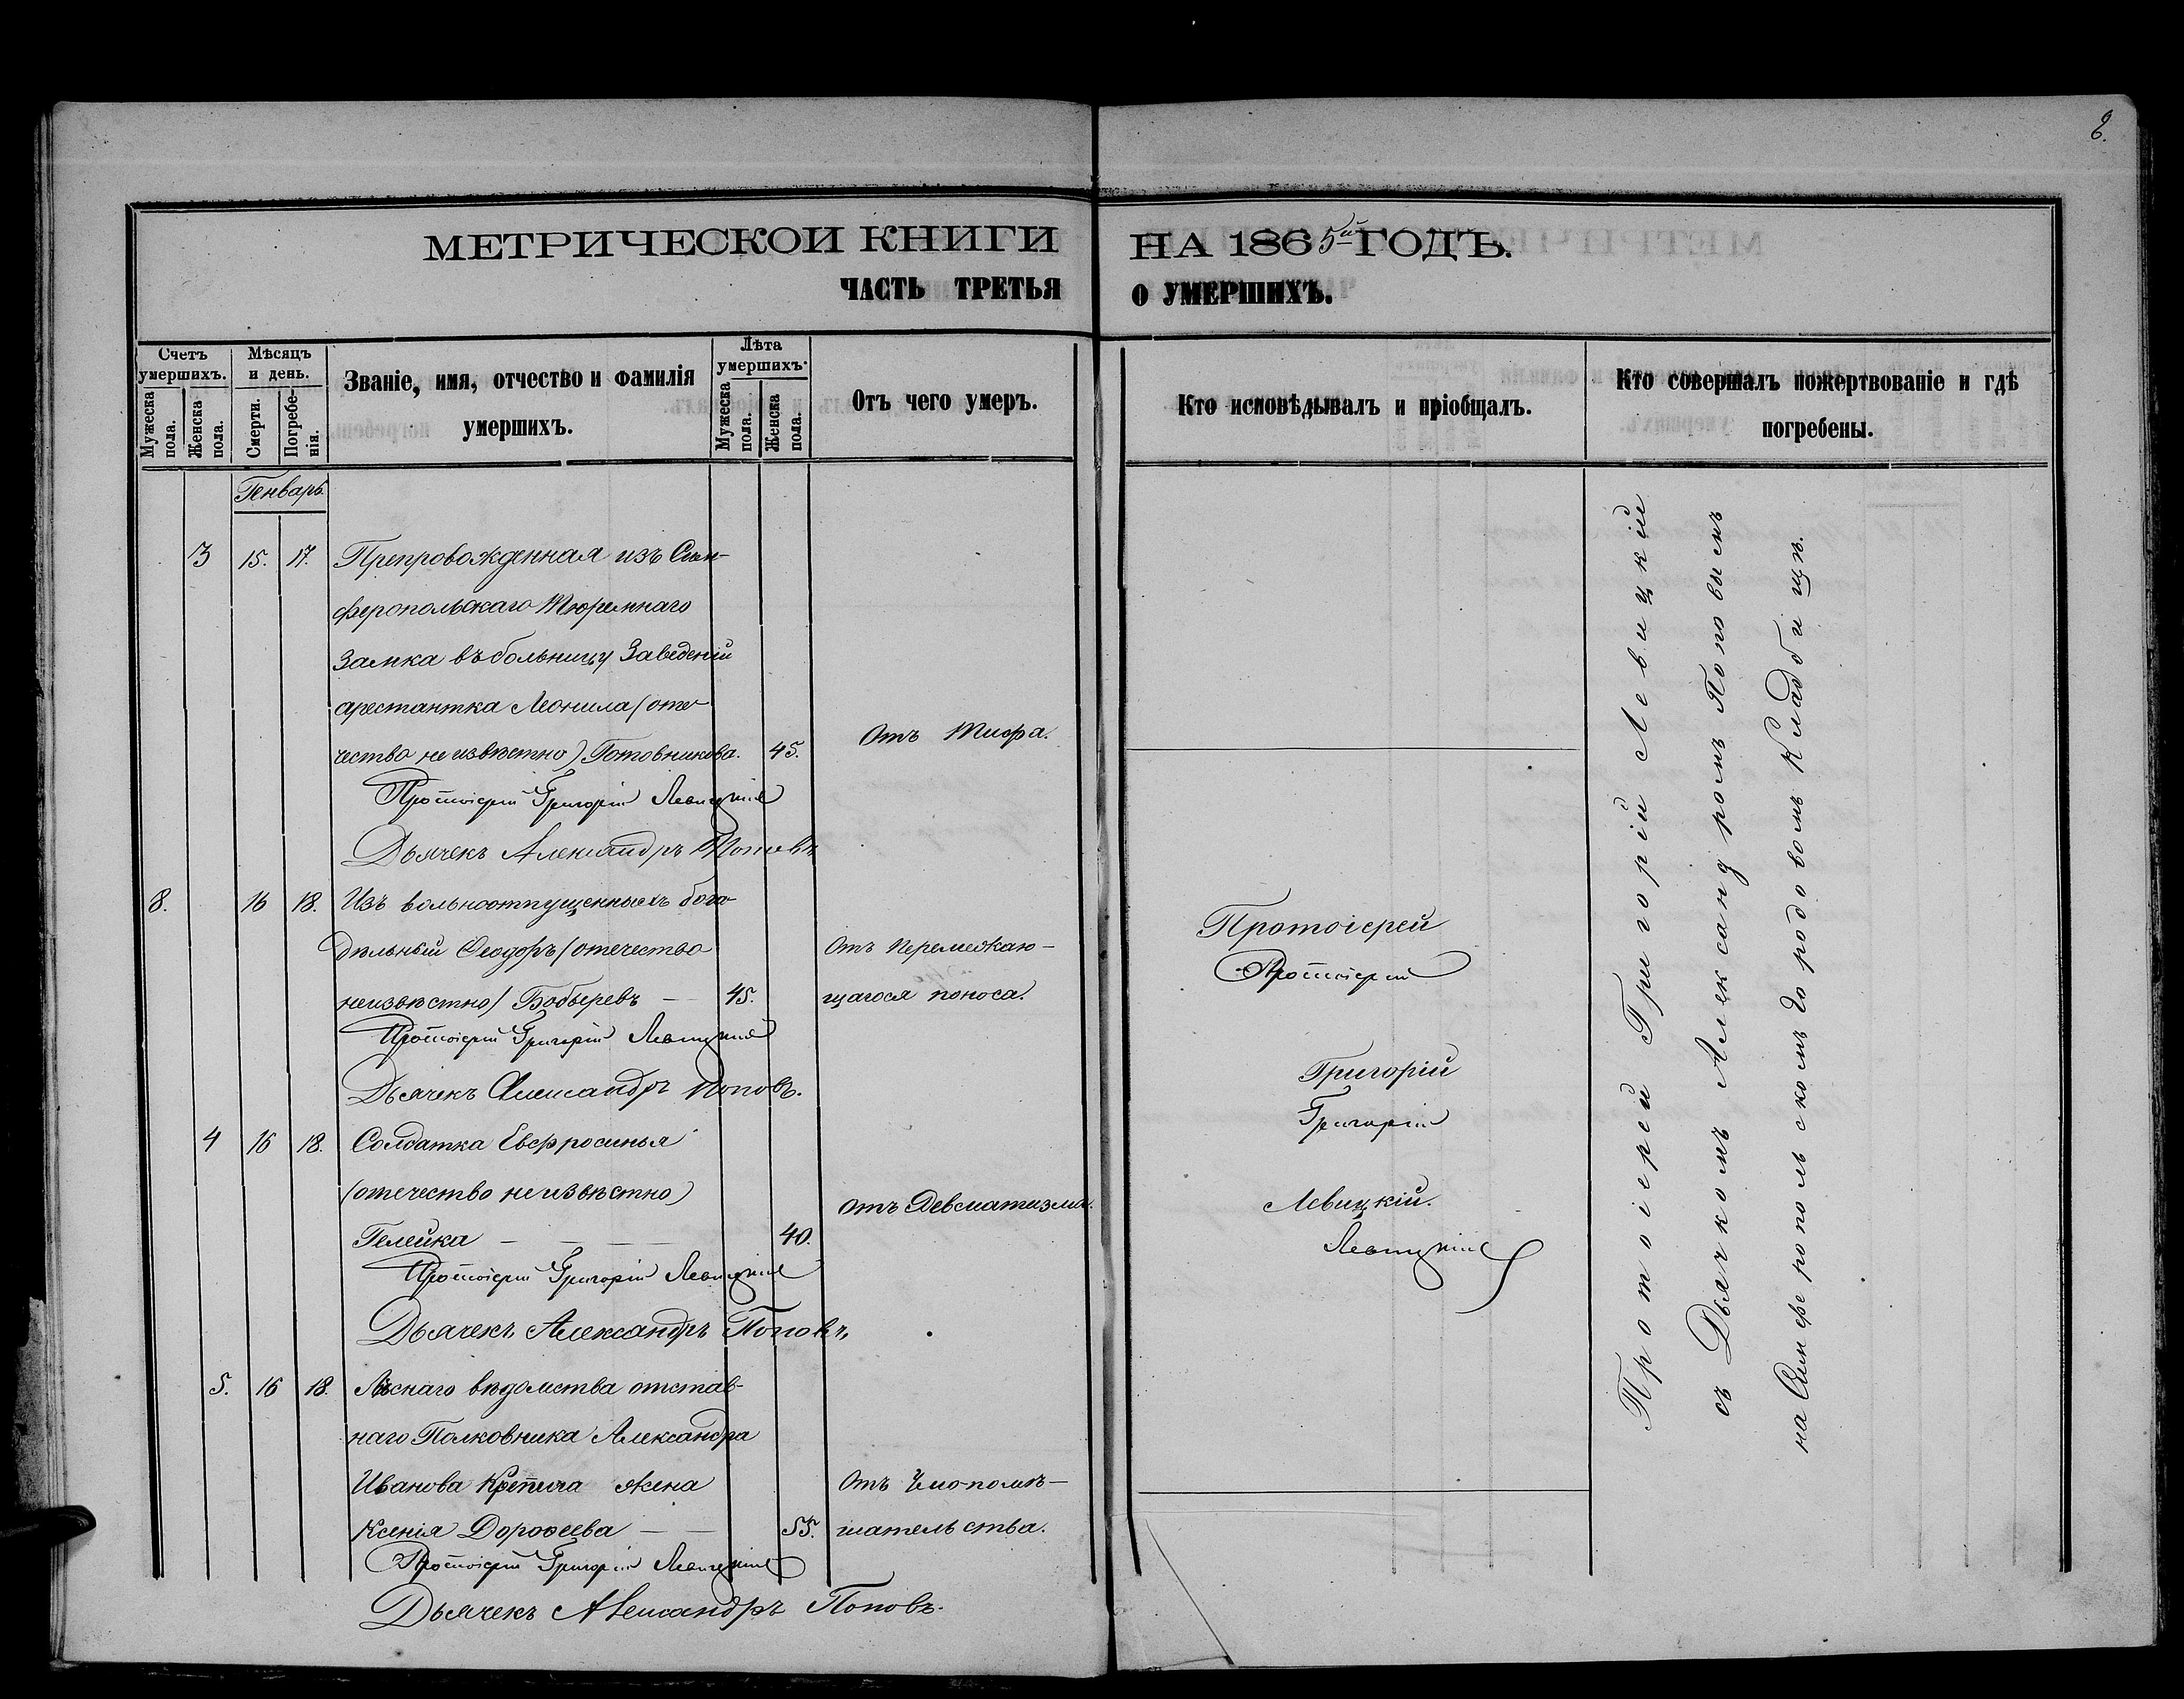 8.
МЕТРИЧЕСКОЙ КНИГИ НА 1865й ГОДЪ.
ЧАСТЬ ТРЕТЬЯ О УМЕРШИХЪ.
Счетъ умершихъ.
Мужеска пола.
Женска пола.
Мѣсяцъ и день.
Смерти.
Погребенія.
Званіе, имя, отчество и фамилія
умершихъ.
Лѣта умершихъ.
Мужеска пола.
Женска пола.
Отъ чего умеръ.
Кто исповѣдывалъ и пріобщалъ.
Кто совершалъ пожертвованіе и гдѣ
погребены.
Генварь
3 15. 17. Препровожденная изъ Сим-
феропольскаго Тюремнаго
Замка въ больницу Заведеній
арестантка Леонила (оте-
чество неизвѣстно) Готовникова. 45. Отъ Тифа.
Протоіерей Григорій Левицкій
Дьячекъ Александръ Поповъ
8. 16 18. Изъ вольноотпущенныхъ бога-
дѣльный Ѳеодоръ (отечество Отъ перемежаю-
неизвѣстно) Бобыревъ — 45. щагося поноса.
Протоіерей Григорій Левицкій
Дьячекъ Александръ Поповъ.
4 16 18. Солдатка Евфросинья
(отечество неизвѣстно)
Гелейка — — — 40. Отъ Ревматизма.
Протоіерей Григорій Левицкій
Дьячекъ Александръ Поповъ.
5. 16 18. Лѣснаго вѣдомства отстав-
наго Полковника Александра
Иванова жена Отъ Умопомѣ-
Ксенія Дороѳеева — — 55. шательства.
Протоіерей Григорій Левицкій
Дьячекъ Александръ Поповъ.
Протоіерей
Протоіерей
Григорій
Григорій
Левицкій.
Левицкій
Протоіерей Григорій Левицкій
съ Дьячкомъ Александромъ Поповымъ
на Симферопольскомъ городовомъ Кладбищѣ.